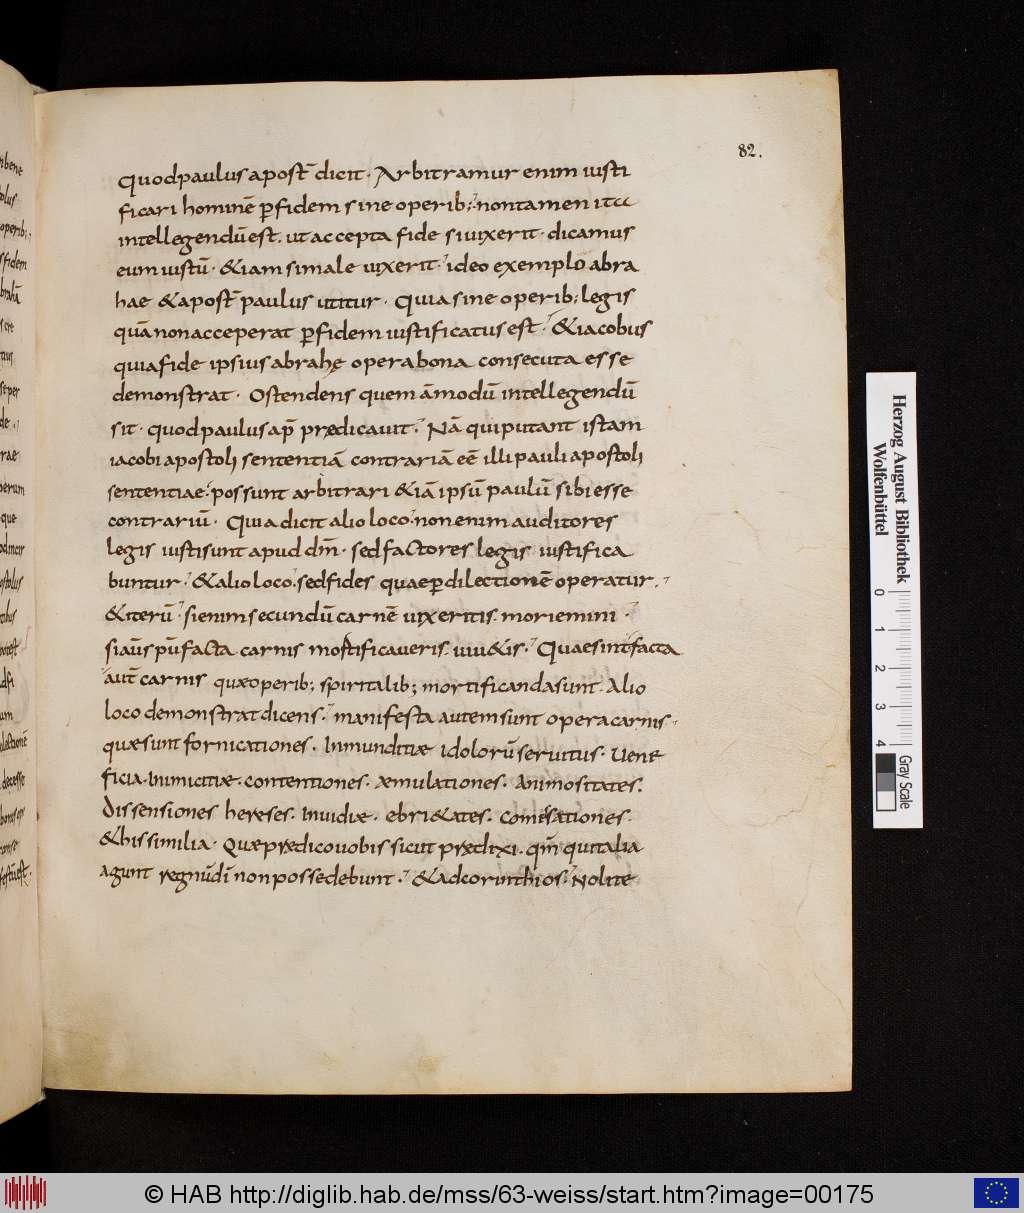 82.
quodpaulus apost̄ dicit· Arbitramur enim iusti
ficari hominē ꝑfidem sine operib; nontamen ita
intellegendū est. ut accepta fide si uixerit· dicamus
eum iustū· &iam si male uixerit· ideo exemplo abra
hae & apost̄ paulus utitur· Quia sine operib; legis
quā non acceperat ꝑfidem iustificatus est· & iacobus
quia fide ipsius abrahę opera bona consecuta esse
demonstrat· Ostendens quem āmodū intellegendū
sit· quod paulus ap̄ prędicauit· Nā qui putant istam
iacobi apostoli sententiā contrariā eē illi pauli apostoli
sententiae· possunt arbitrari &iā ipsū paulū sibi esse
contrariū· Quia dicit alio loco· non enim auditores
legis iusti sunt apud dm̄· sed factores legis iustifica
buntur· & alio loco· sed fides quae ꝑ dilectionē operatur·
&iterū· si enim secundū carnē uixeritis moriemini·
si aūs pū facta carnis mortificaueris uiu&is· Quae sint facta
aut̄ carnis quæ operib; spiritalib; mortificanda sunt· Alio
loco demonstrat dicens· manifesta autem sunt opera carnis·
quæ sunt fornicationes· Inmunditiæ Idolorū seruitus· Uene
ficia· Inimicitiæ· contentiones· æmulationes· Animositates·
Dissensiones hereses· Inuidiæ· ebri&ates· comesationes·
& his similia· Quæ prædico uobis sicut prędixi· qm̄ qui talia
agunt regnū dī non possedebunt· & ad corinthios· Nolite
Herzog August Bibliothek
Wolfenbüttel
0 1 2 3 4
Gray Scale
© HAB http://diglib.hab.de/mss/63-weiss/start.htm?image=00175